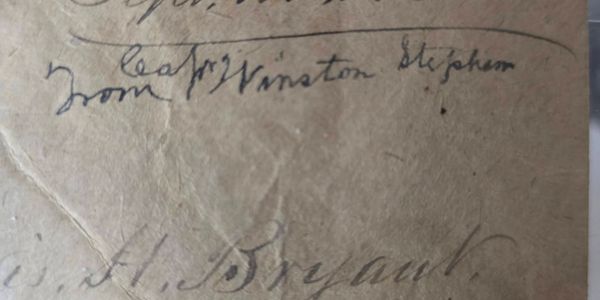 From Capt Winston Stephens
is. H. Bryant.